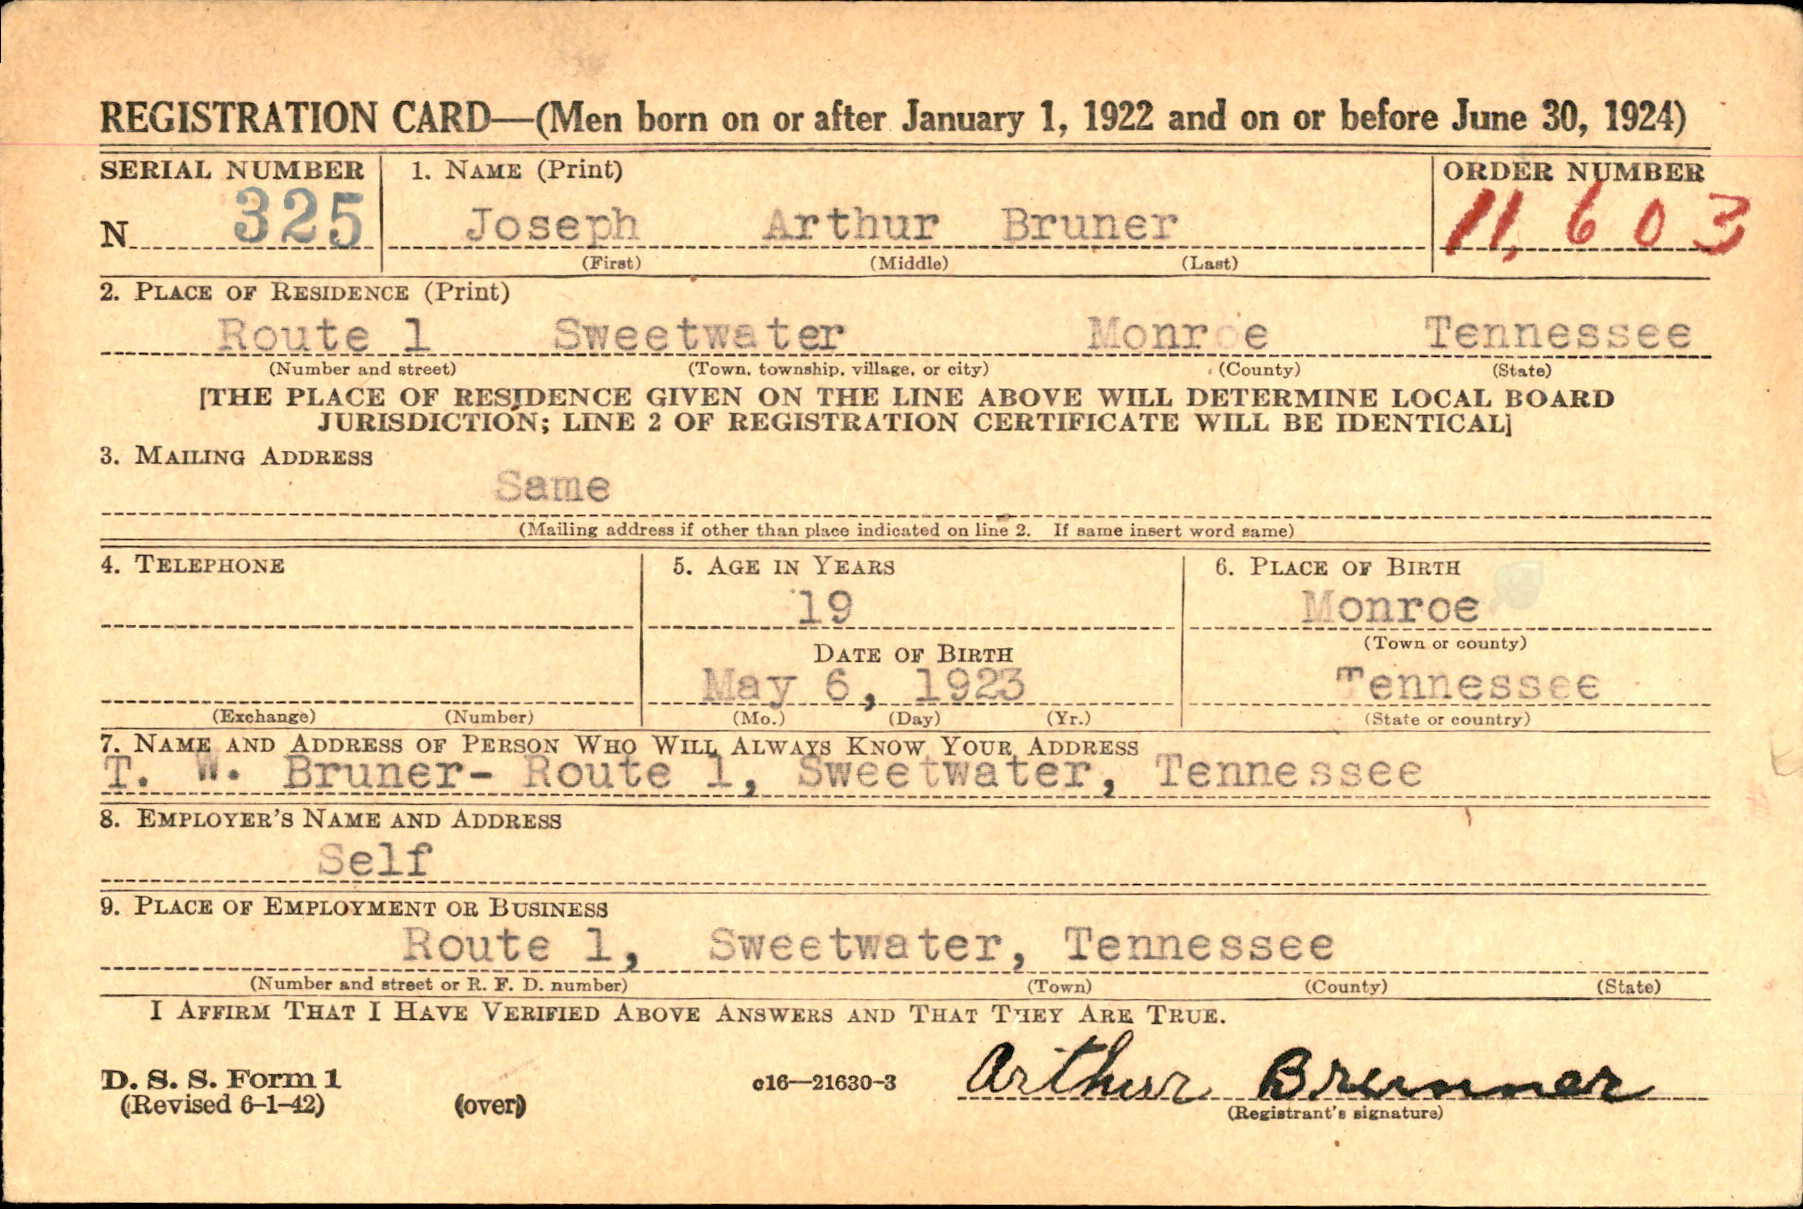 REGISTRATION CARD—(Men born on or after January 1, 1922 and on or before June 30, 1924)
SERIAL NUMBER 1. NAME (Print) ORDER NUMBER
N 325 Joseph Arthur Bruner 11,603
(First) (Middle) (Last)
2. PLACE OF RESIDENCE (Print)
Route 1 Sweetwater Monroe Tennessee
(Number and street) (Town, township, village, or city) (County) (State)
[THE PLACE OF RESIDENCE GIVEN ON THE LINE ABOVE WILL DETERMINE LOCAL BOARD
JURISDICTION; LINE 2 OF REGISTRATION CERTIFICATE WILL BE IDENTICAL]
3. MAILING ADDRESS
Same
(Mailing address if other than place indicated on line 2. If same insert word same)
4. TELEPHONE 5. AGE IN YEARS 6. PLACE OF BIRTH
19 Monroe
DATE OF BIRTH (Town or county)
May 6, 1923 Tennessee
(Exchange) (Number) (Mo.) (Day) (Yr.) (State or country)
7. NAME AND ADDRESS OF PERSON WHO WILL ALWAYS KNOW YOUR ADDRESS
T. W. Bruner- Route 1, Sweetwater, Tennessee
8. EMPLOYER'S NAME AND ADDRESS
Self
9. PLACE OF EMPLOYMENT OR BUSINESS
Route 1, Sweetwater, Tennessee
(Number and street or R. F. D. number) (Town) (County) (State)
I AFFIRM THAT I HAVE VERIFIED ABOVE ANSWERS AND THAT THEY ARE TRUE.
D. S. S. Form 1 c16—21630-3 Arthur Brunner
(Revised 6-1-42) (over) (Registrant's signature)